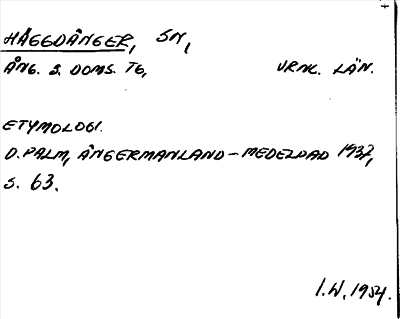 HÄGGDÅNGER, SN,
ÅNG. S. DOMS. TG, VRNL. LÄN.
ETYMOLOGI.
D. PALM, ÅNGERMANLAND – MEDELPAD 1937,
S. 63.
I.W. 1954.